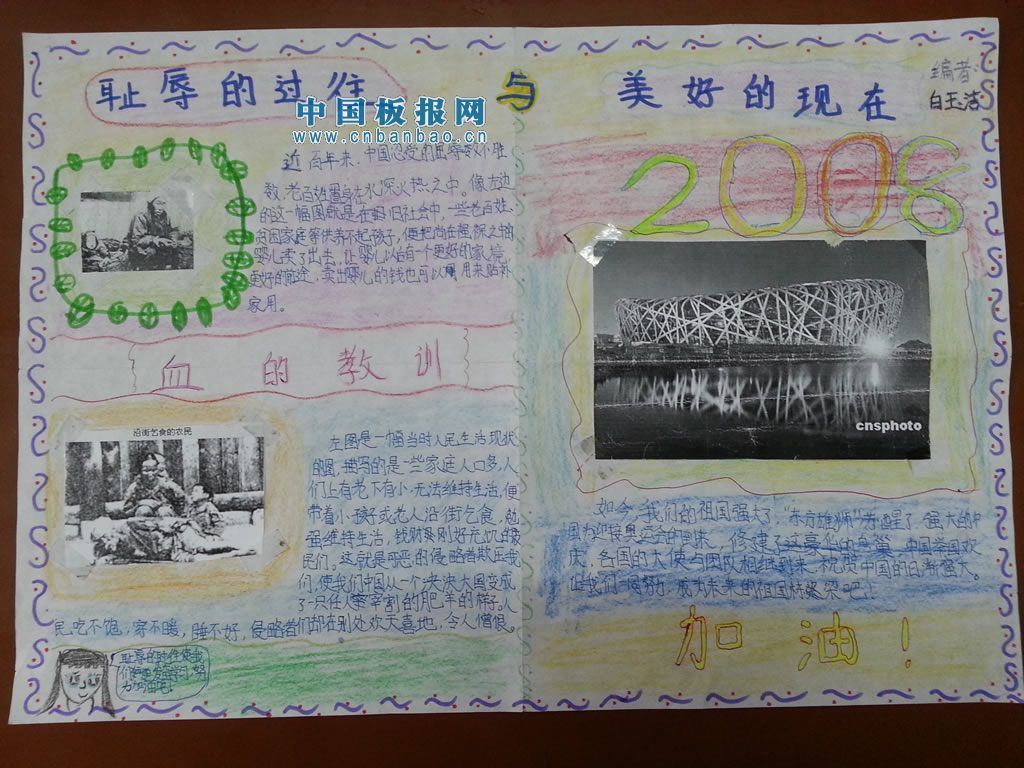 耻辱的过往
与
美好的现在
编者:
白玉洁
中国板报网
www.cnbanbao.cn
近百年来,中国忍受的屈辱数不胜
数,老百姓置身在水深火热之中。像左边
的这一幅图就是在旧社会中,一些老百姓、
贫困家庭等供养不起孩子,便把尚在襁褓之中
婴儿卖了出去,让婴儿以后有一个更好的家境
更好的前途,卖出婴儿的钱也可以用来贴补
家用。
血的教训
沿街乞食的农民
左图是一幅当时人民生活现状
的图,描写的是一些家庭人口多,人
们上有老下有小无法维持生活,便
带着小孩子或老人沿街乞食,勉
强维持生活,
民们。这就是可恶的侵略者欺压我
们,使我们中国从一个泱泱大国变成
了一只任人宰割的肥羊的样子。人
民吃不饱,穿不暖,睡不好,侵略者们却在别处欢天喜地,令人憎恨。
耻辱的过往使我
们更发奋学习,努
力加油吧!
2008
cnsphoto
如今,我们的祖国强大了,“东方雄狮”苏醒了,强大的中
国为迎接奥运会的到来,修建了这豪华的鸟巢,中国举国欢
庆,各国的大使与团队相继到来,祝贺中国的日渐强大。
让我们一起努力,成为未来的祖国栋梁吧!
加油!